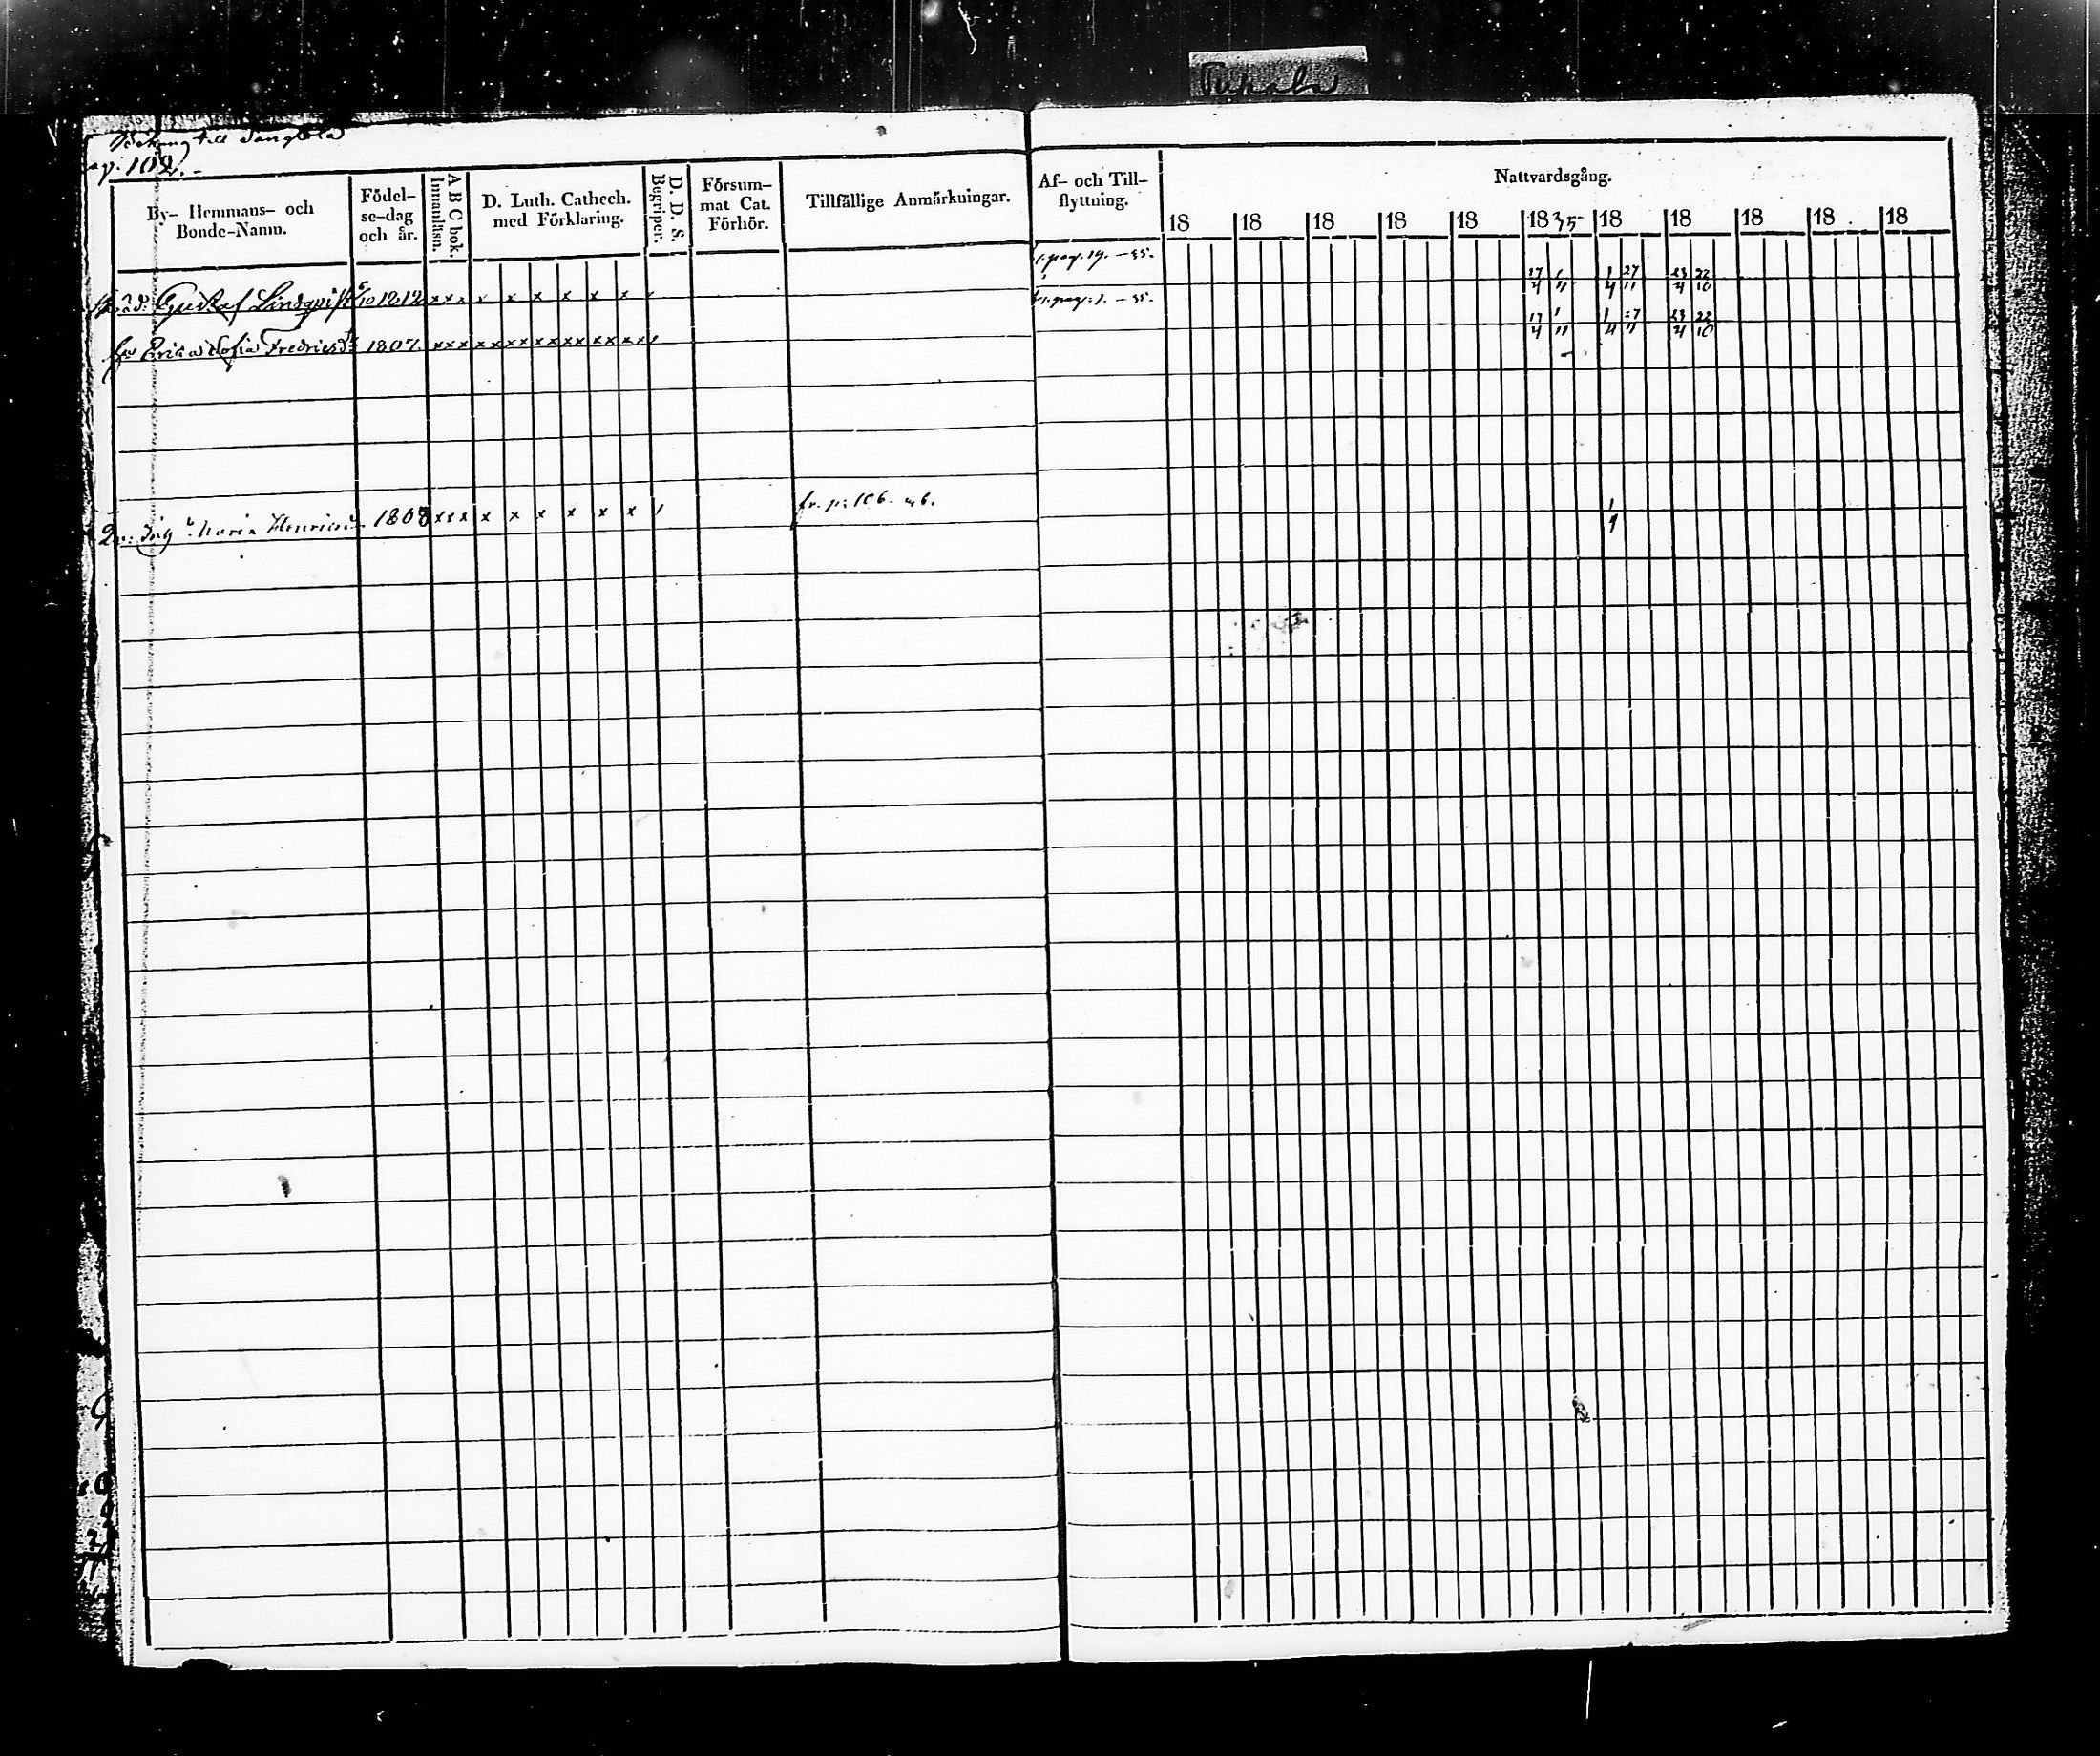 till
p. 102.
By- Hemmans- och Bonde-Namn.
Födel-se-dag och år.
A B C bok. Innanläsn.
D. Luth. Cathech. med Förklaring.
D. D. S. Begriper.
Försum-mat Cat. Förhör.
Tillfällige Anmärkningar.
Af- och Till-flyttning.
Nattvardsgång.
18 18 18 18 18 1835 18 18 18 18 18
Gustaf Lindqvist 6/10 1812 x x x x x x x x x pag. 19. - 35. 17/4 1/11 1/4 27/11 23/4 22/10
Erica Sofia Fredricsdr 1807. x x x x x x x x x x x x x x pag. - 35. 17/4 1/11 1/4 27/11 23/4 22/10
Maria Henrics 1808 x x x x x x x x x fr. p. 106. 1/4